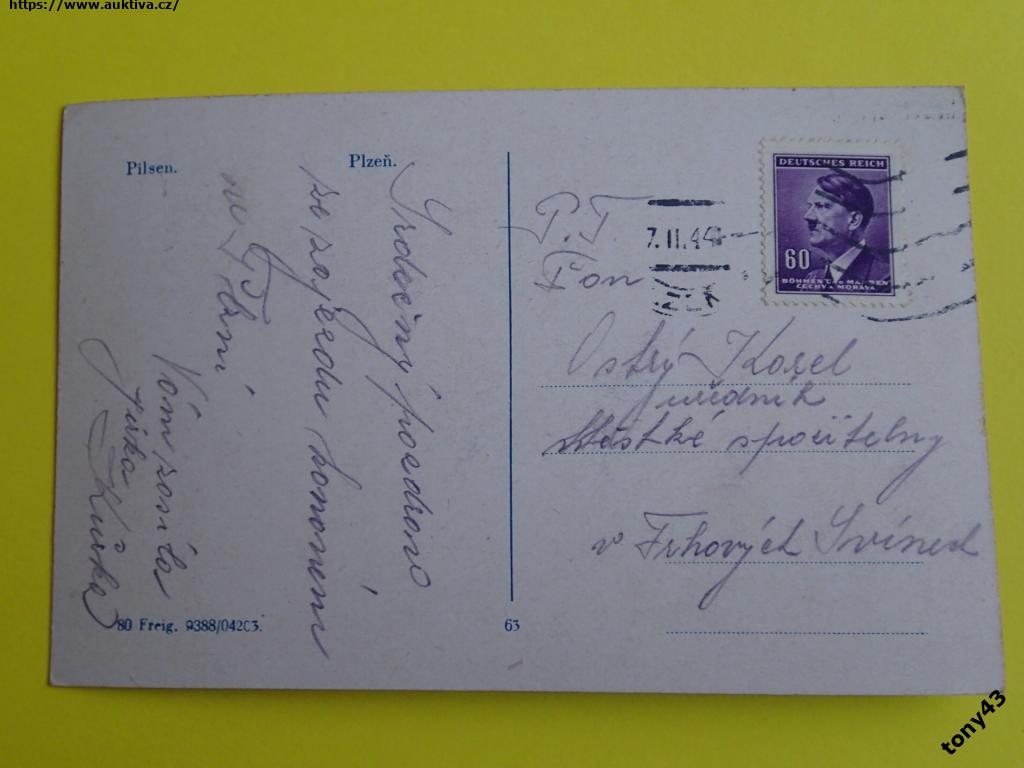 https://www.auktiva.cz/
Pilsen.
Plzeň.
Srdečný pozdrav
ze zájezdu
v Plzni
Vám zasílá
Jirka
80 Freig. 9388/04203.
63
7.II.44
DEUTSCHES REICH
60
BÖHMEN u. MÄHREN
ČECHY a MORAVA
P. T.
Pan
Ostrý Karel
úředník
Městské spořitelny
v Trhových Svinech
tony43